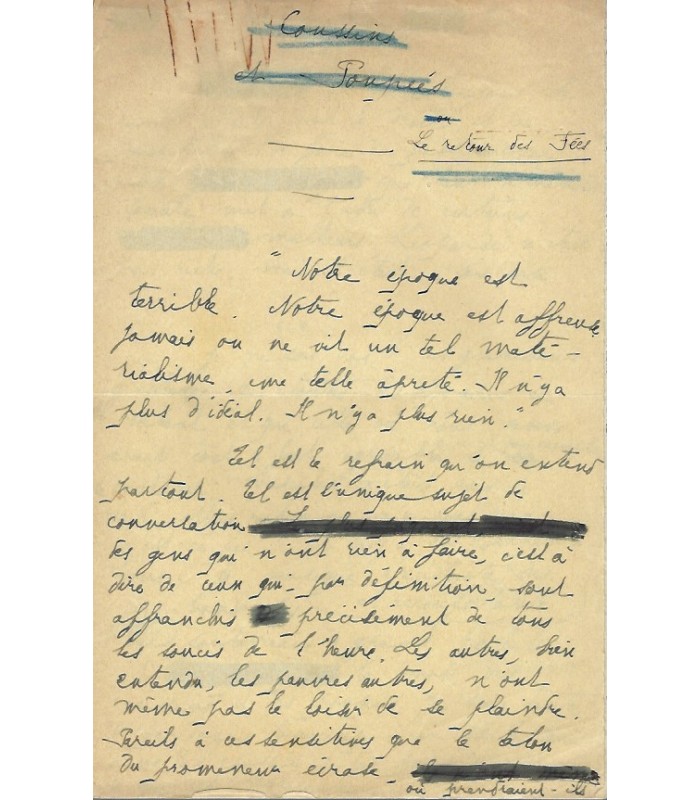 Coussins
et Poupées
ou
Le retour des Fées
"Notre époque est
terrible. Notre époque est affreuse,
jamais on ne vit un tel maté-
rialisme, une telle âpreté. Il n'y a
plus d'idéal. Il n'y a plus rien."
Tel est le refrain qu'on entend
partout. Tel est l'unique sujet de
conversation
des gens qui n'ont rien à faire, c'est à
dire de ceux qui, par définition, sont
affranchis précisément de tous
les soucis de l'heure. Les autres, bien
entendu, les pauvres autres, n'ont
même pas le loisir de se plaindre.
Pareils à ces sensitives que le talon
du promeneur écrase,
où prendraient-ils